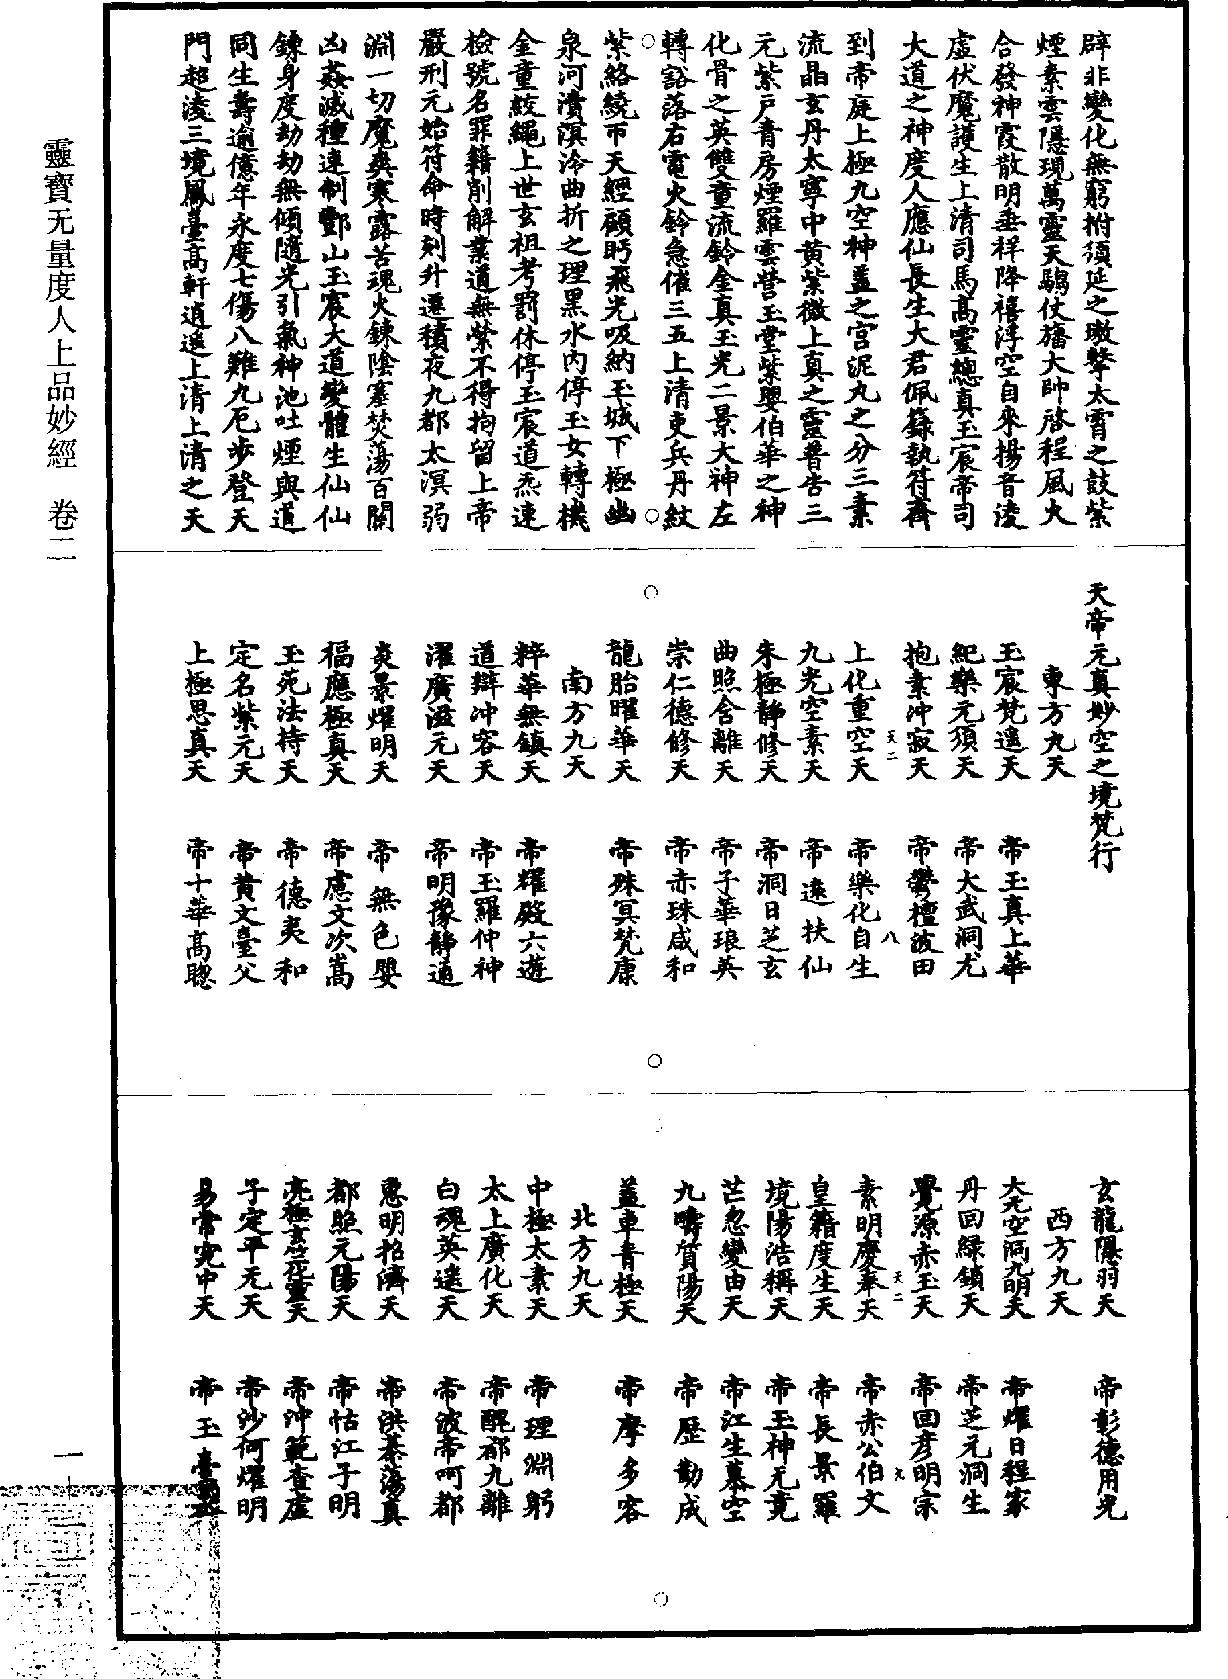 靈寶无量度人上品妙經　卷二
辟非變化無窮拊須延之璈擊太霄之鼓紫
煙素雲隱現萬靈天騶仗旛大帥啓程風火
合發神霞散明垂祥降禧浮空自來揚音淩
虛伏魔護生上清司馬高靈總真玉宸帝司
大道之神度人應仙長生大君佩籙執符齋
到帝庭上極九空神蓋之宮泥丸之分三素
流晶玄丹太寧中黃紫微上真之靈普告三
元紫戶青房煙羅雲營玉堂紫嬰伯華之神
化骨之英雙童流鈴金真玉光二景大神左
轉豁落右電火鈴急催三五上清吏兵丹紋
紫絡繞帀天經顧眄飛光吸納玉城下極幽
泉河瀆溟泠曲折之理黑水內停玉女轉機
金童絞繩上世玄祖考罰休停玉宸道炁速
檢號名罪籍削解業道無縈不得拘留上帝
嚴刑元始符命時刻升遷積夜九都太溟弱
淵一切魔爽寒露苦魂火鍊陰塞焚蕩百關
凶姦滅種連制酆山玉宸大道變體生仙仙
鍊身度劫劫無傾隨光引氣神池吐煙與道
同生壽逾億年永度七傷八難九厄步登天
門超淩三境鳳臺高軒逍遙上清上清之天
天帝元真妙空之境梵行
東方九天
玉宸梵遠天　帝玉真上華
紀樂元須天　帝大武洞尤
抱素沖寂天　帝鬱檀波田
天二　八
上化重空天　帝樂化自生
九光空素天　帝遠扶仙
朱極靜修天　帝洞日芝玄
曲照含離天　帝子華琅英
崇仁德修天　帝赤珠咸和
龍胎曜華天　帝殊冥梵康
南方九天
粹華無鎮天　帝耀殿六遊
道辯沖容天　帝玉羅仲神
濯廣溢元天　帝明豫靜道
炎景燿明天　帝無色嬰
福應極真天　帝慮文次嵩
玉苑法持天　帝德夷和
定名紫元天　帝黄文臺父
上極思真天　帝十華高聰
玄龍隱羽天　帝彰德用光
西方九天
大元空洞九明天　帝燿日程家
丹回綠鎖天　帝芝元洞生
覺源赤玉天　帝回彥明宗
天二　九
素明慶奉天　帝赤公伯文
皇籍度生天　帝長景羅
境陽浩稱天　帝玉神无竟
芒忽變由天　帝江生慕空
九疇質陽天　帝歷勤成
蓋車青極天　帝摩多容
北方九天
中極太素天　帝理淵躬
太上廣化天　帝醍都九離
白魂英遠天　帝波帝呵都
惠明招濟天　帝洪綦蕩真
都照元陽天　帝怙江子明
亮極玄花靈天　帝沖範查虛
子定平无天　帝沙何燿明
易常完中天　帝玉臺